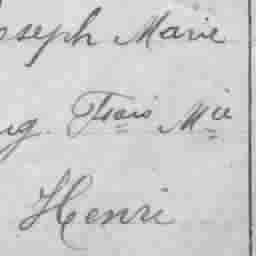 oseph Marie
ug. Fçois Mie
Henri